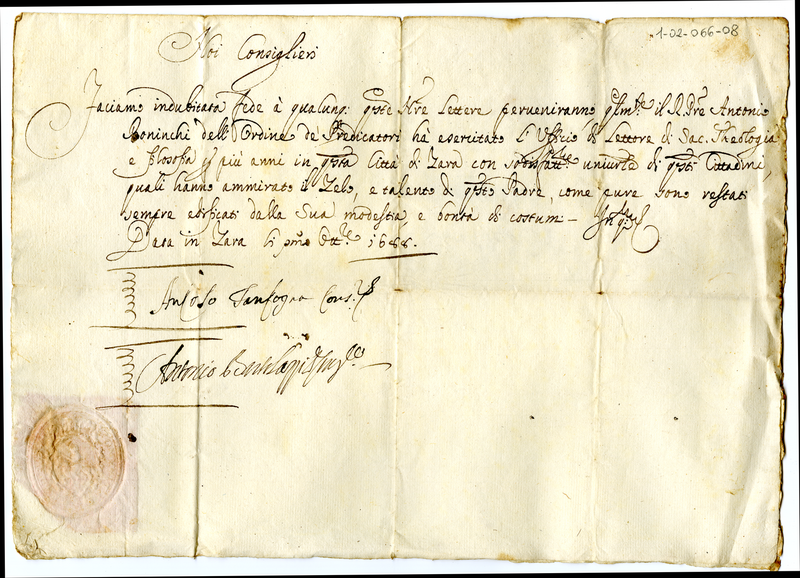 1-02-066-08
Noi Consiglieri
Faciamo indubitata fede à qualunq: qste Nre Lettere perveniranno qlmte il R. Pre Antonio
Boninchi dell'Ordine de Predicatori hà esercitato l'Ufficio di Lettore di Sac. Theologia
e filosofia p più anni in qsta Città di Zara con univrle di qsti Cittadini,
quali hanno ammirato il Zelo, e talento di qsto Padre, come pure sono restati
sempre edificati dalla Sua modestia, e bontà di costumi –
Data in Zara li pmo Ottre 1688.
Tanfogna Cons.
Antonio